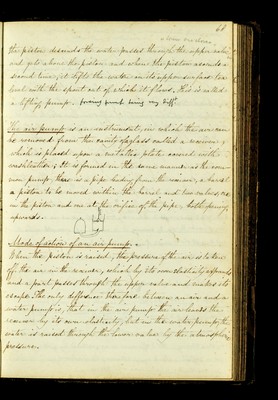 60
the piston descends the water passes through the upper valve
and gets above the piston and when the piston ascends a
second time, it lifts the water on its upper surface to a
level with the spout out of which it flows. This is called
a lifting pump. forcing pump being very diff.
The air pump is an instrument, in which the air can
be removed from the cavity of a glass called a receiver,
which is placed upon a metallic plate covered with
It is formed in the same manner as the com
mon pump, there is a pipe leading from the receiver, a barrel
a piston to be moved within the barrel and two valves, one
in the piston and one at the orifice of the pipe, both opening
upwards.
Mode of action of an air pump.
When the piston is raised, the pressure of the air is taken
off the air in the receiver, which by its own elasticity expands
and a part passes through the upper valve and makes its
escape. The only difference therefore between an air and a
water pump is, that in the air pump the air leaves the
receiver by its own elasticity, but in the water pump, the
water is raised through the lower valve by the atmospheric
pressure.